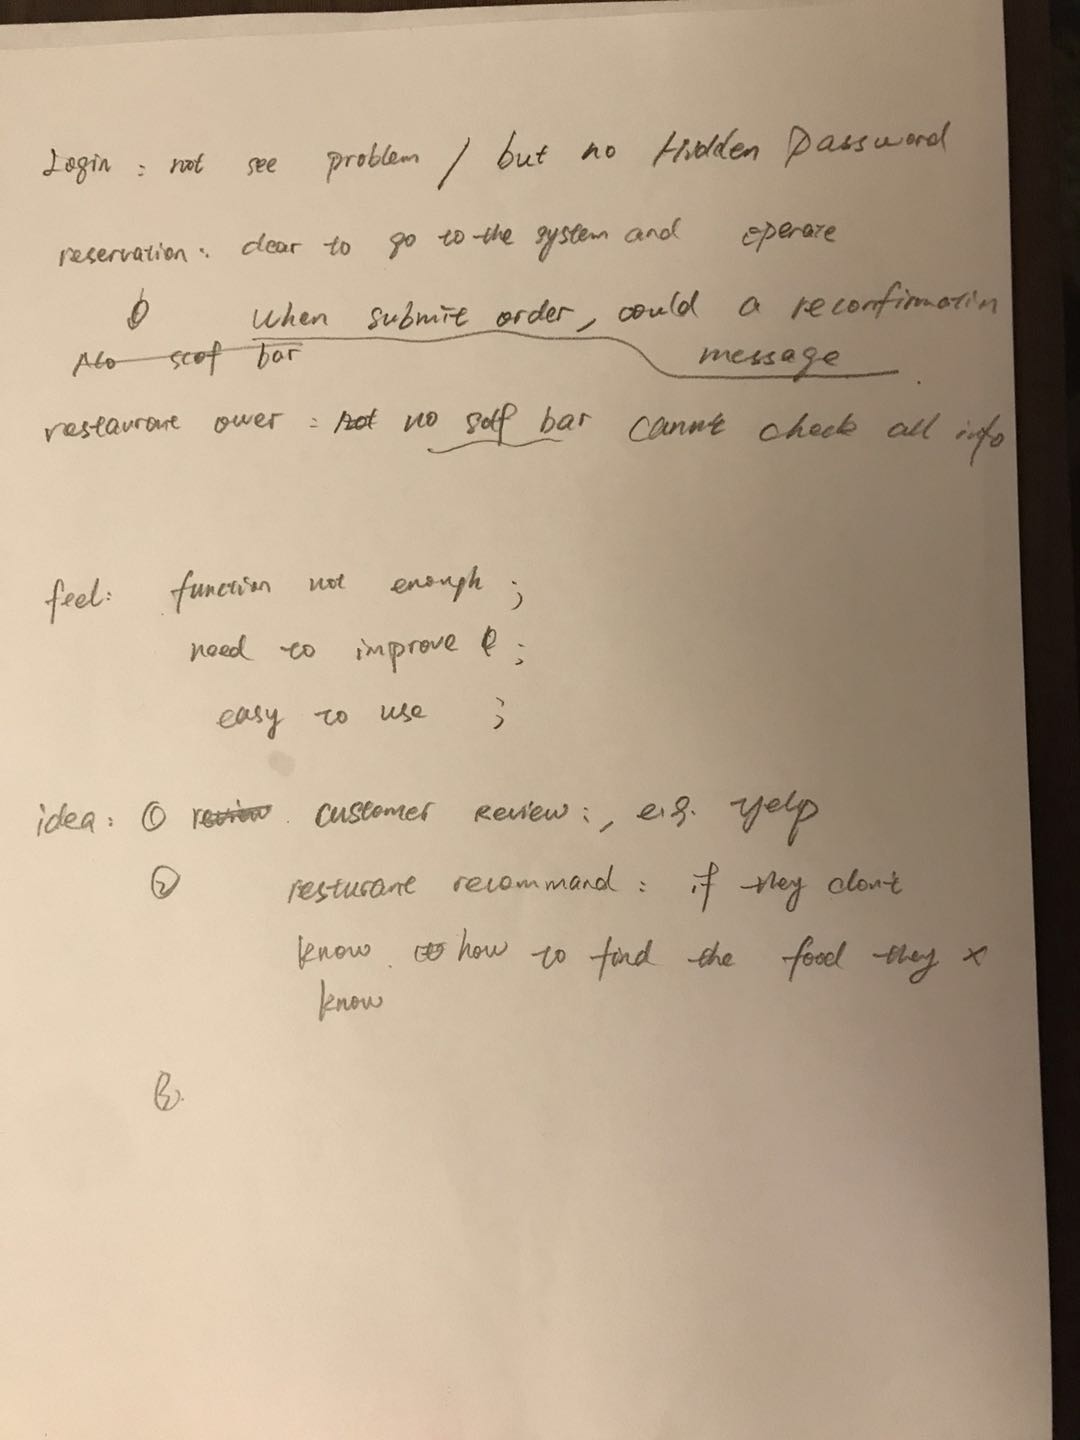 Login : not see problem / but no Hidden Password
reservation : clear to go to the system and operate
When submit order, could a reconfirmation
bar message
restaurant ower : no bar cannt check all info
feel : function not enough ;
need to improve ;
easy to use ;
idea : ① review customer Review : , e.g. Yelp
② resturant recommand : if they don't
know how to find the food they x
know
3.